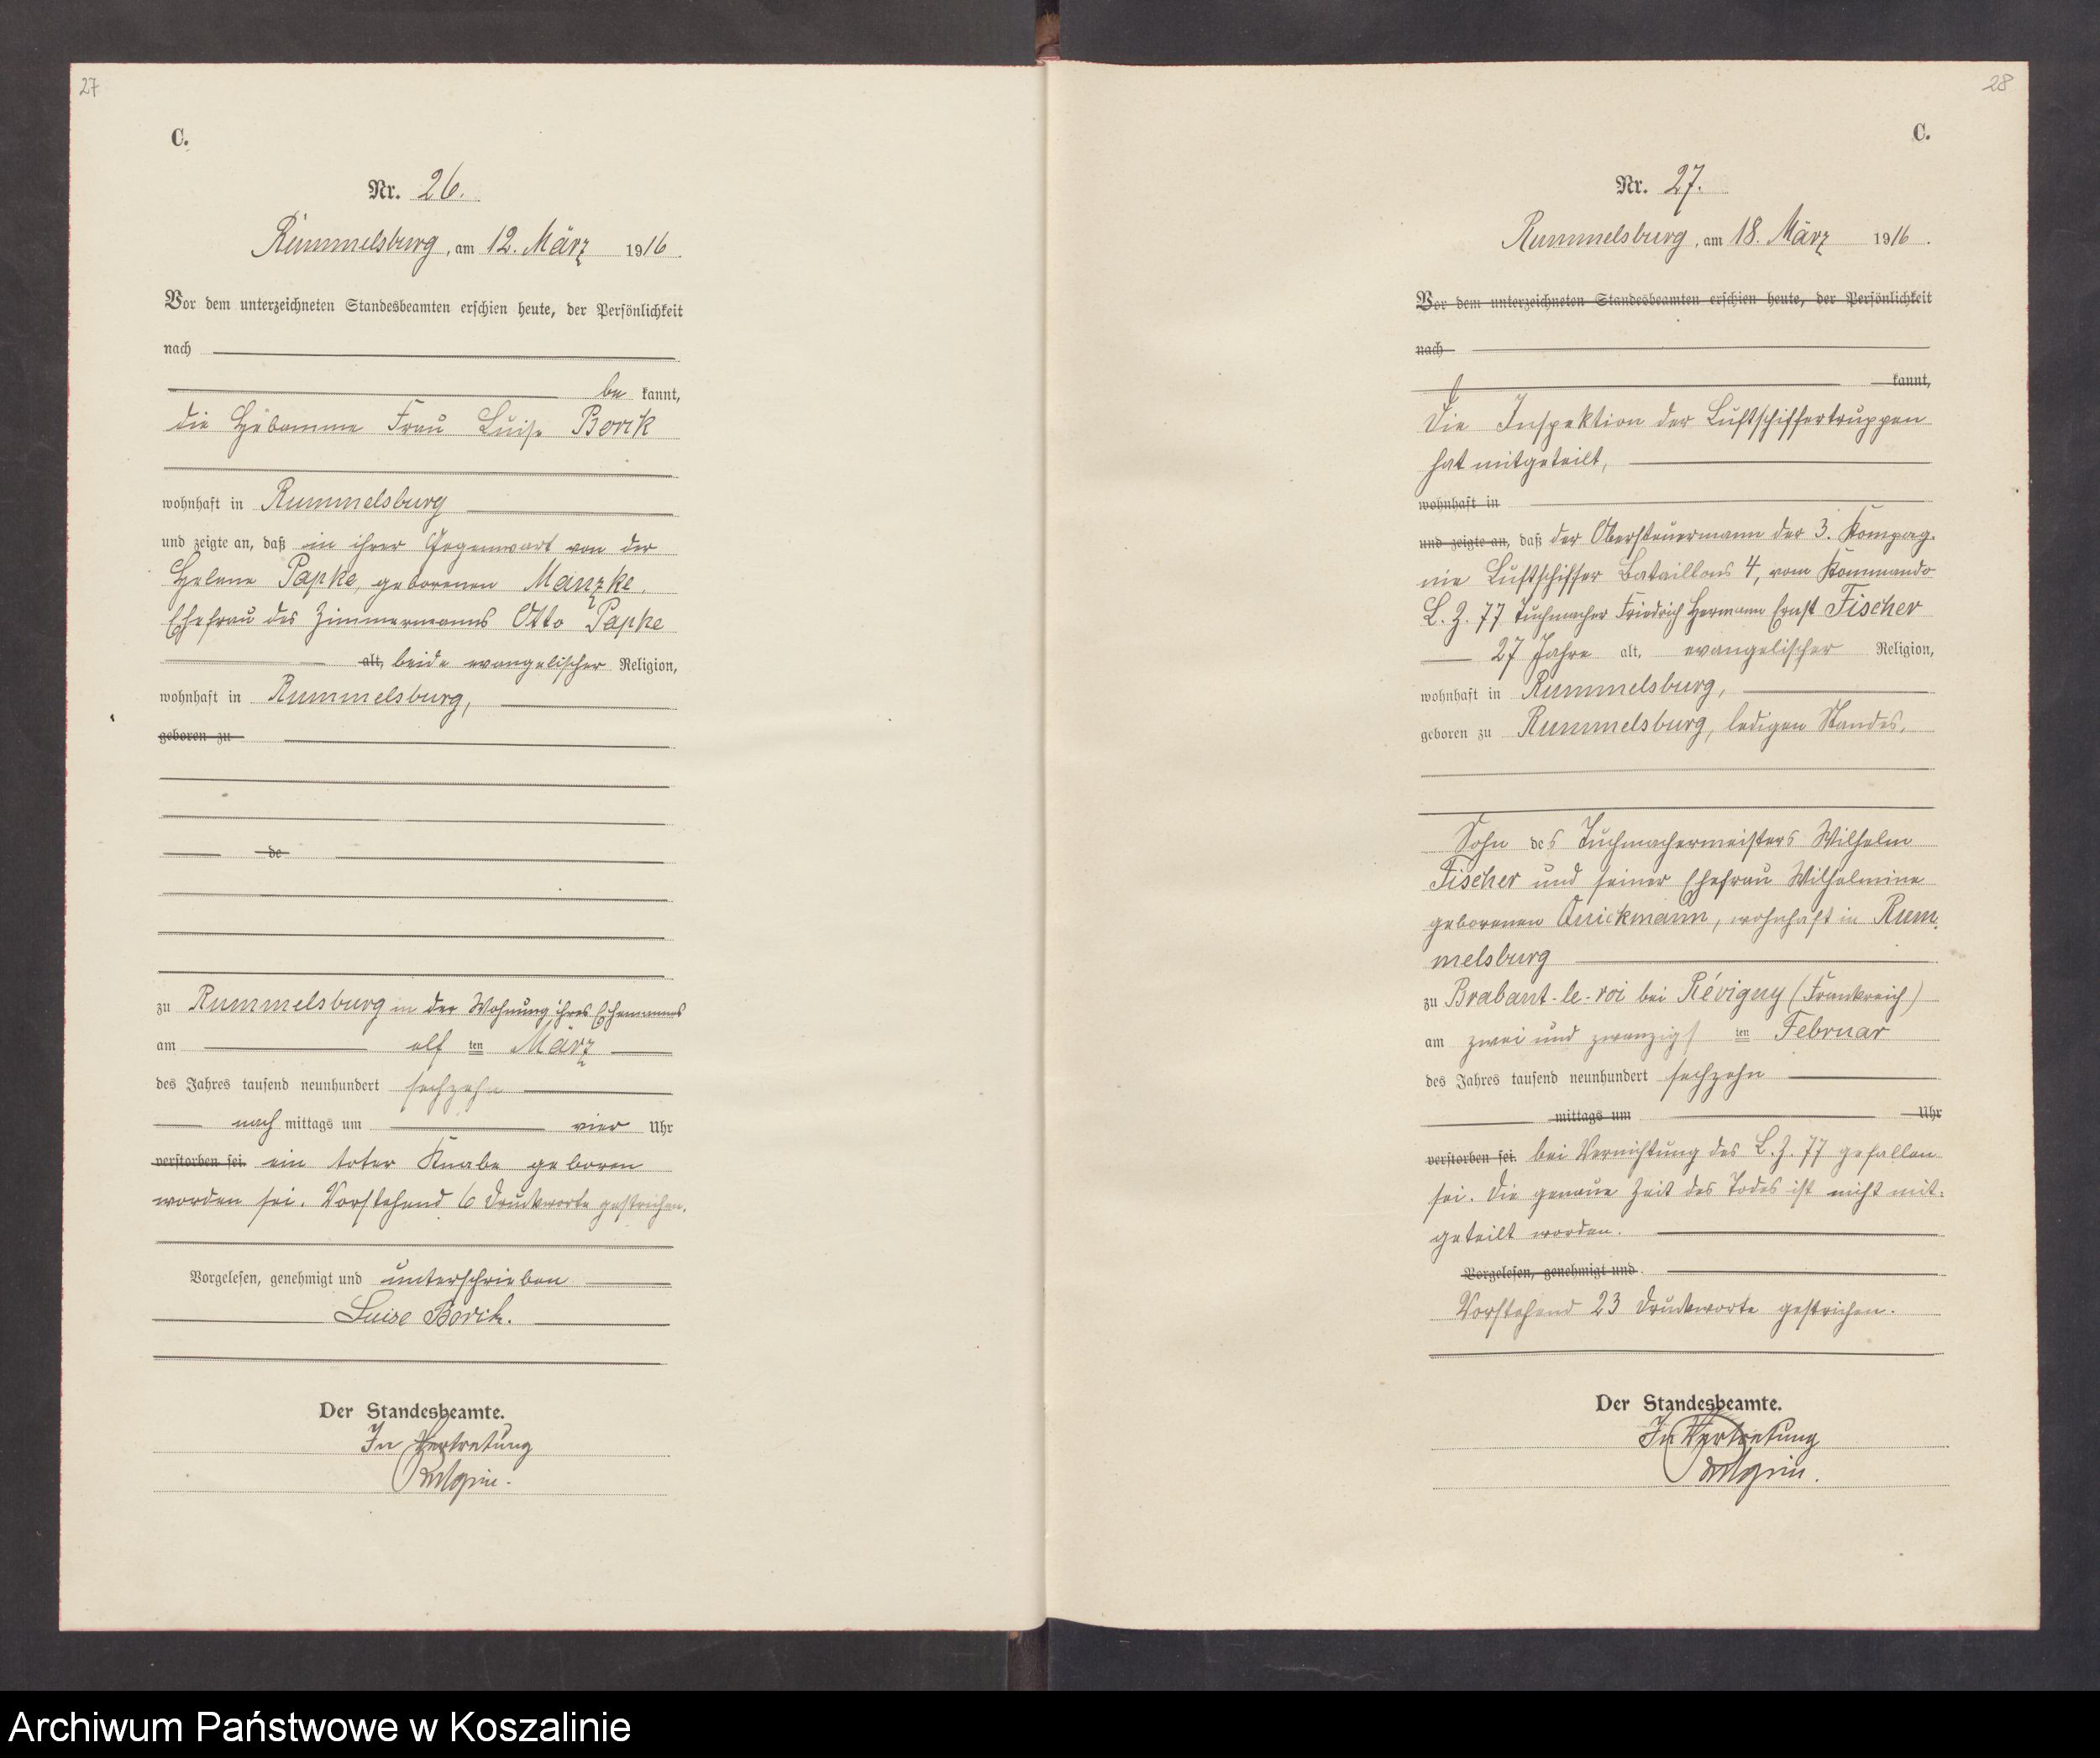 27
C.
Nr. 26.
Rummelsburg, am 12. März 1916.
Vor dem unterzeichneten Standesbeamten erschien heute, der Persönlichkeit
nach
be kannt,
die Hebamme Frau Luise Borck
wohnhaft in Rummelsburg
und zeigte an, daß in ihrer Gegenwart von der
Helene Papke, geborenen Manzke,
Ehefrau des Zimmermanns Otto Papke
alt, beide evangelischer Religion,
wohnhaft in Rummelsburg,
geboren zu
de
zu Rummelsburg in der Wohnung ihres Ehemannes
am elf ten März
des Jahres tausend neunhundert sechzehn
nach mittags um vier Uhr
verstorben sei. ein toter Knabe geboren
worden sei. Vorstehend 6 Druckworte gestrichen.
Vorgelesen, genehmigt und unterschrieben
Luise Borck.
Der Standesbeamte.
In Vertretung
28
C.
Nr. 27.
Rummelsburg, am 18. März 1916.
Vor dem unterzeichneten Standesbeamten erschien heute, der Persönlichkeit
nach
kannt,
Die Inspektion der Luftschiffertruppen
hat mitgeteilt,
wohnhaft in
und zeigte an, daß der Obersteuermann der 3. Kompag-
nie Luftschiffer Bataillons 4, vom Kommando
L. Z. 77 Tuchmacher Friedrich Hermann Ernst Fischer
27 Jahre alt, evangelischer Religion,
wohnhaft in Rummelsburg,
geboren zu Rummelsburg, ledigen Standes,
Sohn des Tuchmachermeisters Wilhelm
Fischer und seiner Ehefrau Wilhelmine
geborenen Quickmann, wohnhaft in Rum-
melsburg
zu Brabant-le-roi bei Révigny (Frankreich)
am zwei und zwanzigsten ten Februar
des Jahres tausend neunhundert sechzehn
mittags um Uhr
verstorben sei. bei Vernichtung des L. Z. 77 gefallen
sei. Die genaue Zeit des Todes ist nicht mit-
geteilt worden.
Vorgelesen, genehmigt und
Vorstehend 23 Druckworte gestrichen.
Der Standesbeamte.
In Vertretung
Archiwum Państwowe w Koszalinie